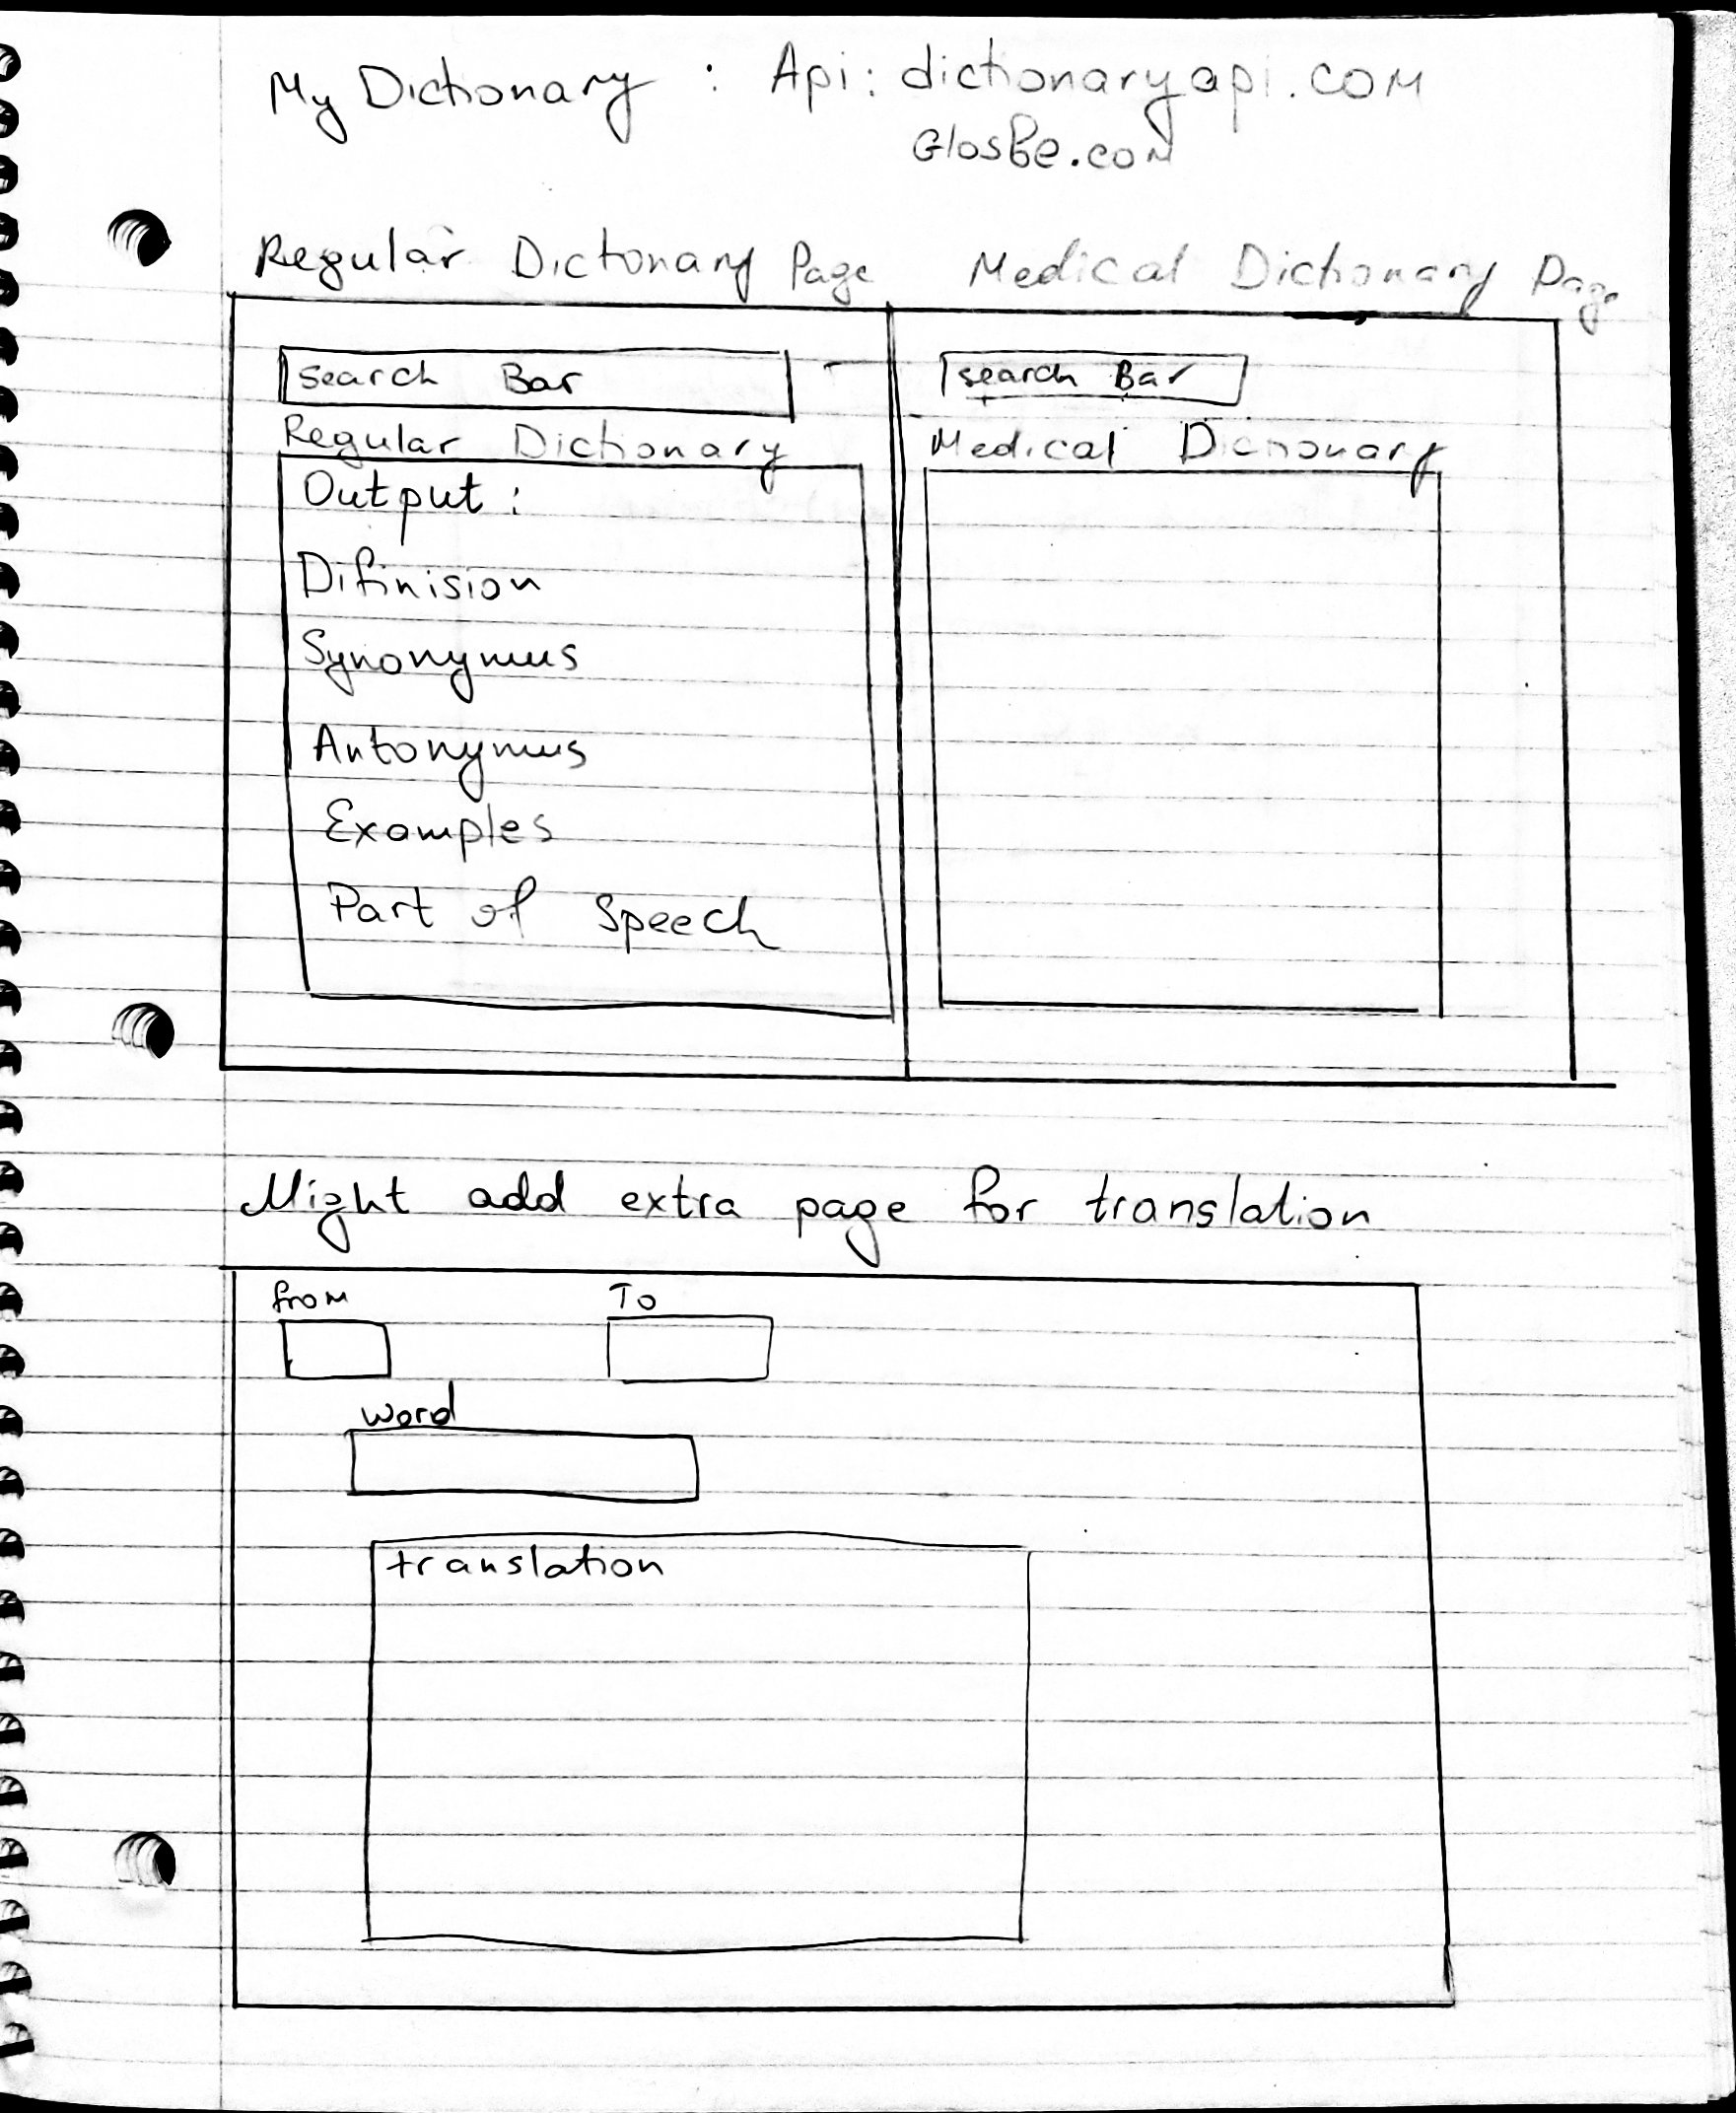 My Dictionary : Api: dictionaryapi.com
Glosbe.com
Regular Dictonary Page
Medical Dictionary Page
Search Bar
Regular Dictionary
Output :
Difinision
Synonymus
Antonymus
Examples
Part of Speech
search Bar
Medical Dictionary
Might add extra page for translation
from
To
word
translation